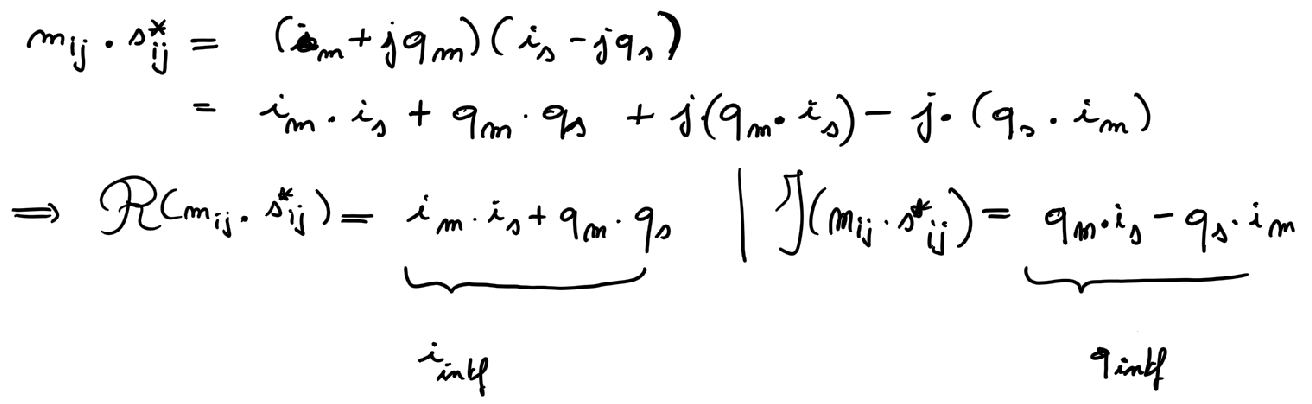 m_ij · s*_ij = (i_m + jq_m)(i_s - jq_s)
= i_m · i_s + q_m · q_s + j(q_m · i_s) - j · (q_s · i_m)
⇒ ℛ(m_ij · s*_ij) = i_m · i_s + q_m · q_s | ℐ(m_ij · s*_ij) = q_m · i_s - q_s · i_m
i_intf q_intf